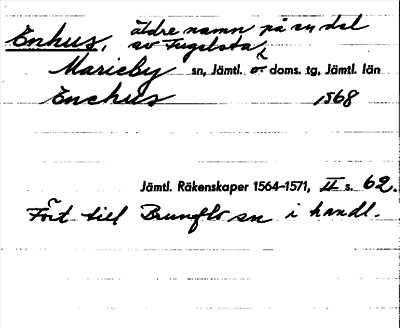 Enhus, äldre namn på en del
av Fugelsta,
Marieby sn, Jämtl. ö doms. tg, Jämtl. län
Enehus 1568
Jämtl. Räkenskaper 1564–1571, II s. 62.
Fört till Brunflo sn i handl.